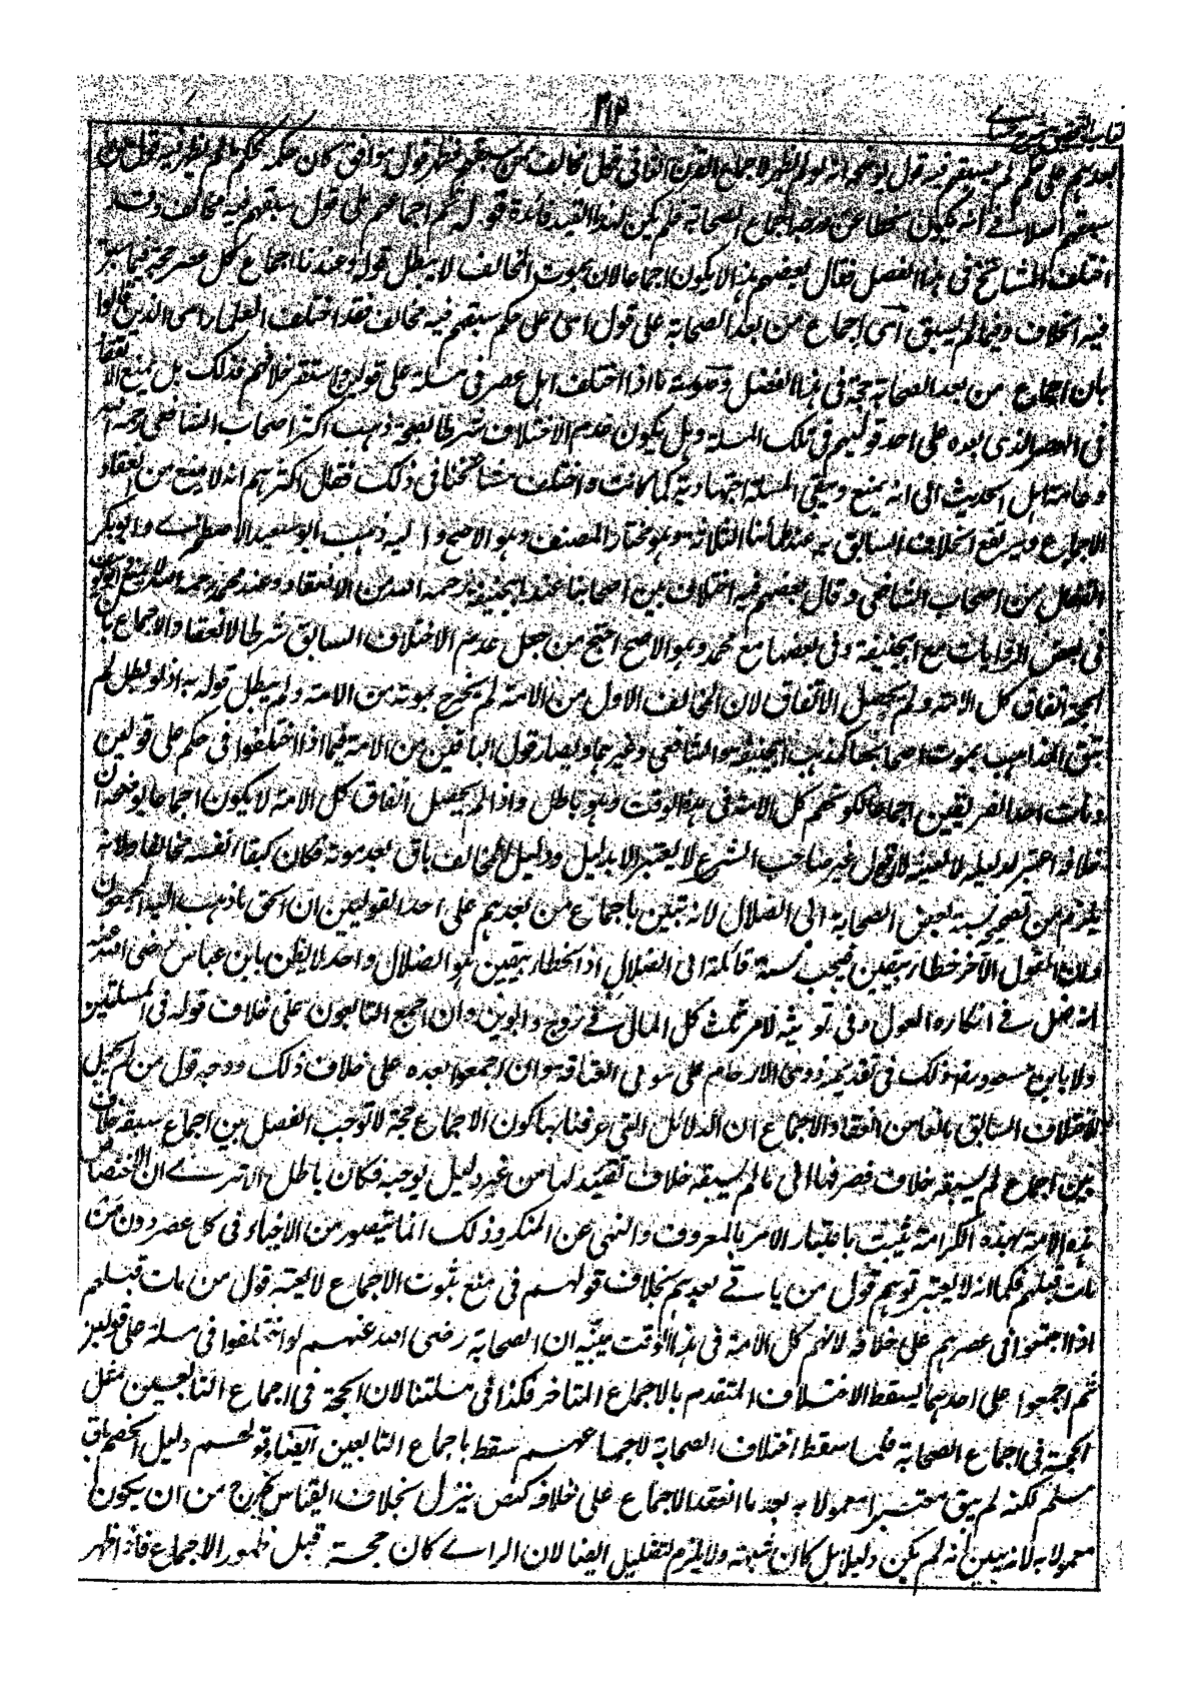 ٢١٢
كتاب التحقيق شرح حسامي
بعدهم على حكم لم يسبقهم فيه قول يوضحه انه لو لم يظهر لاجماع القرن الثانى قول مخالف ممن سبقهم فظهر قول موافق كان حكمه كحكم ما لم يظهر فيه قول ممن
سبقهم اصلا في انه يكون منحطا عن درجة اجماع الصحابة فلم يكن لهذا القيد فائدة قوله ثم اجماعهم على قول سبقهم فيه مخالف وقد
اختلف المشائخ فى هذا الفصل فقال بعضهم هذا لا يكون اجماعا لان بموت المخالف لا يبطل قوله وعندنا اجماع كل عصر حجة فيما سبق
فيه الخلاف وفيما لم يسبق اى اجماع من بعد الصحابة على قول اى على حكم سبقهم فيه مخالف فقد اختلف العلماء اى الذين قالوا
بان اجماع من بعد الصحابة حجة فى هذا الفصل وصورته ما اذا اختلف اهل عصر فى مسئلة على قولين واستقر خلافهم فذلك هل يمنع الانعقاد
فى العصر الذى بعده على احد قوليهم فى تلك المسئلة وهل يكون عدم الاختلاف شرطا لصحته ذهب اكثر اصحاب الشافعى رحمه الله
وعامة اهل الحديث الى انه يمنع ويبقى المسئلة اجتهادية كما كانت واختلف مشائخنا فى ذلك فقال اكثرهم انه لا يمنع من انعقاد
الاجماع ويرتفع الخلاف السابق به عند علمائنا الثلاثة وهو مختار المصنف وهو الاصح واليه ذهب ابو سعيد الاصطخرى وابو بكر
القفال من اصحاب الشافعى وقال بعضهم فيه اختلاف بين اصحابنا عند ابيحنيفة رحمه الله من الانعقاد وعند محمد رحمه الله لا يمنع ابو يوسف
فى بعض الروايات مع ابيحنيفة وفى بعضها مع محمد وهو الاصح احتج من جعل عدم الاختلاف السابق شرطا لانعقاد الاجماع بان
الحجة اتفاق كل الامة ولم يحصل الاتفاق لان المخالف الاول من الامة لم يخرج بموته من الامة ولم يبطل قوله به اذ لو بطل لم
تبق المذاهب بموت اصحابها كمذهب ابيحنيفة والشافعى وغيرهما ولصار قول الباقين من الامة فيما اذا اختلفوا فى حكم على قولين
ومات احد الفريقين اجماعا لكونهم كل الامة فى هذه الوقت وهو باطل واذا لم يحصل اتفاق كل الامة لا يكون اجماعا يوضحه ان
خلافه اعتبر لدليله لا لعينه لان قول غير صاحب الشرع لا يعتبر الا بدليل ودليل المخالف باق بعد موته فكان كبقاء نفسه مخالفا ولانه
يلزم من تصحيحه نسبة بعض الصحابة الى الضلال لانه تبين باجماع من بعدهم على احد القولين ان الحق ما ذهب اليه المجمعون
وان القول الآخر خطاء بيقين فيجب نسبة قائله الى الضلال اذ الخطاء بيقين هو الضلال واحد لا يظن بابن عباس رضى الله عنه
انه ضل فى انكاره العول وفى توريثه لام ثلث كل المال فى زوج وابوين وان اجمع التابعون على خلاف قوله فى المسئلتين
ولا بابن مسعود رضى ذلك فى تقديمه ذوى الارحام على مولى العتاقة وان اجمعوا بعده على خلاف ذلك ووجه قول من لم يجعل
الاختلاف السابق مانعا من انعقاد الاجماع ان الدلائل التى عرفنا بها كون الاجماع حجة لا توجب الفصل بين اجماع سبقه خلاف
وبين اجماع لم يسبقه خلاف فصرفها الى ما لم يسبقه خلاف تقييد لها من غير دليل يوجبه فكان باطلا الا ترى ان اختصاص
هذه الامة بهذه الكرامة ثبتت باعتبار الامر بالمعروف والنهى عن المنكر وذلك انما يتصور من الاحياء فى كل عصر دون من
مات قبلهم فكما انه لا يعتبر توهم قول من ياتى بعدهم بخلاف قولهم فى منع ثبوت الاجماع لا يعتبر قول من مات قبلهم
اذا اجتمعوا فى عصرهم على خلافه لانهم كل الامة فى هذا الوقت يبينه ان الصحابة رضى الله عنهم لو اختلفوا فى مسئلة على قولين
ثم اجمعوا على احدهما يسقط الاختلاف المتقدم بالاجماع المتاخر فكذا فى مسئلتنا لان الحجة فى اجماع التابعين مثل
الحجة فى اجماع الصحابة فلما سقط اختلاف الصحابة لاجماعهم سقط باجماع التابعين ايضا وقولهم دليل الخصم باق
مسلم لكنه لم يبق معتبرا معمولا به بعد ما انعقد الاجماع على خلافه كنص ينزل بخلاف القياس يخرج من ان يكون
معمولا به لانه يبين انه لم يكن دليلا بل كان شبهة ولا يلزم تضليل ايضا لان الراى كان حجة قبل ظهور الاجماع فاذا ظهر